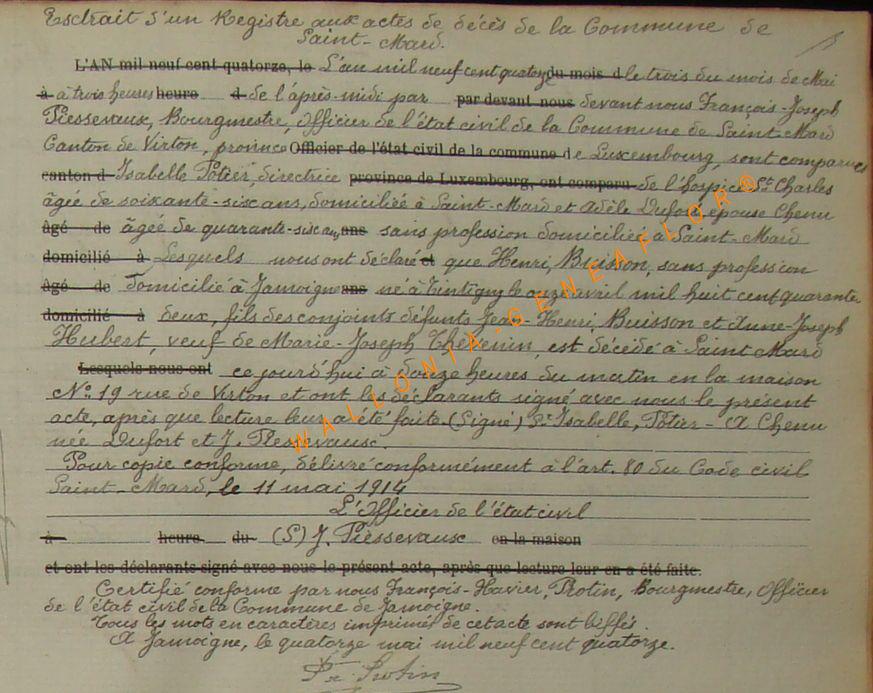 Extrait d'un Registre aux actes de décès de la Commune de
Saint-Mard.
L'AN mil neuf cent quatorze, le L'an mil neuf cent quatorze du mois d le trois du mois de Mai
à à trois heures heure d de l'après-midi par par devant nous devant nous François-Joseph
Piessevaux, Bourgmestre, Officier de l'état civil de la Commune de Saint-Mard
Canton de Virton, province Officier de l'état civil de la commune de Luxembourg, sont comparues
canton d Isabelle Potier, directrice province de Luxembourg, ont comparu de l'hospice St Charles
âgée de soixante-six ans, domiciliée à Saint-Mard et Adèle Dufort, épouse Chenu
âgé de âgée de quarante-six ans ans sans profession domiciliée à Saint-Mard
domicilié à Lesquels nous ont déclaré et que Henri, Buisson, sans profession
âgé de domicilié à Jamoigne ans né à Tintigny le onze avril mil huit cent quarante-
domicilié à deux, fils des conjoints défunts Jean-Henri, Buisson et Anne-Joseph
Hubert, veuf de Marie-Joseph Thévenin, est décédé à Saint Mard
Lesquels nous ont ce jourd'hui à douze heures du matin en la maison
No 19 rue de Virton et ont les déclarants signé avec nous le présent
acte, après que lecture leur a été faite. (Signé) Sr Isabelle, Potier - A Chenu
née Dufort et J. Piessevaux.
Pour copie conforme, délivré conformément à l'art. 80 du Code civil
Saint-Mard, le 11 mai 1914
L'Officier de l'état civil
à heure du (S) J. Piessevaux en la maison
et ont les déclarants signé avec nous le présent acte, après que lecture leur en a été faite.
Certifié conforme par nous François-Xavier, Protin, Bourgmestre, Officier
de l'état civil de la Commune de Jamoigne.
Tous les mots en caractères imprimés de cet acte sont biffés.
A Jamoigne, le quatorze mai mil neuf cent quatorze.
Protin
WALLONIA-GENEAFLOR®